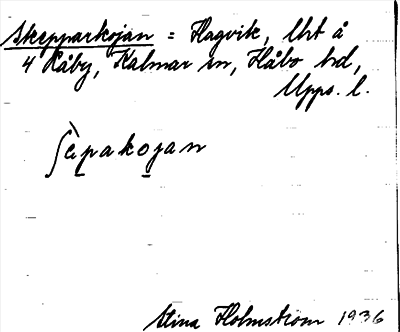 Skepparkojan = Hagvik, lht å
4 Råby, Kalmar sn, Håbo hd,
Upps. l.
ʃèpakojan
Stina Holmstrom 1936